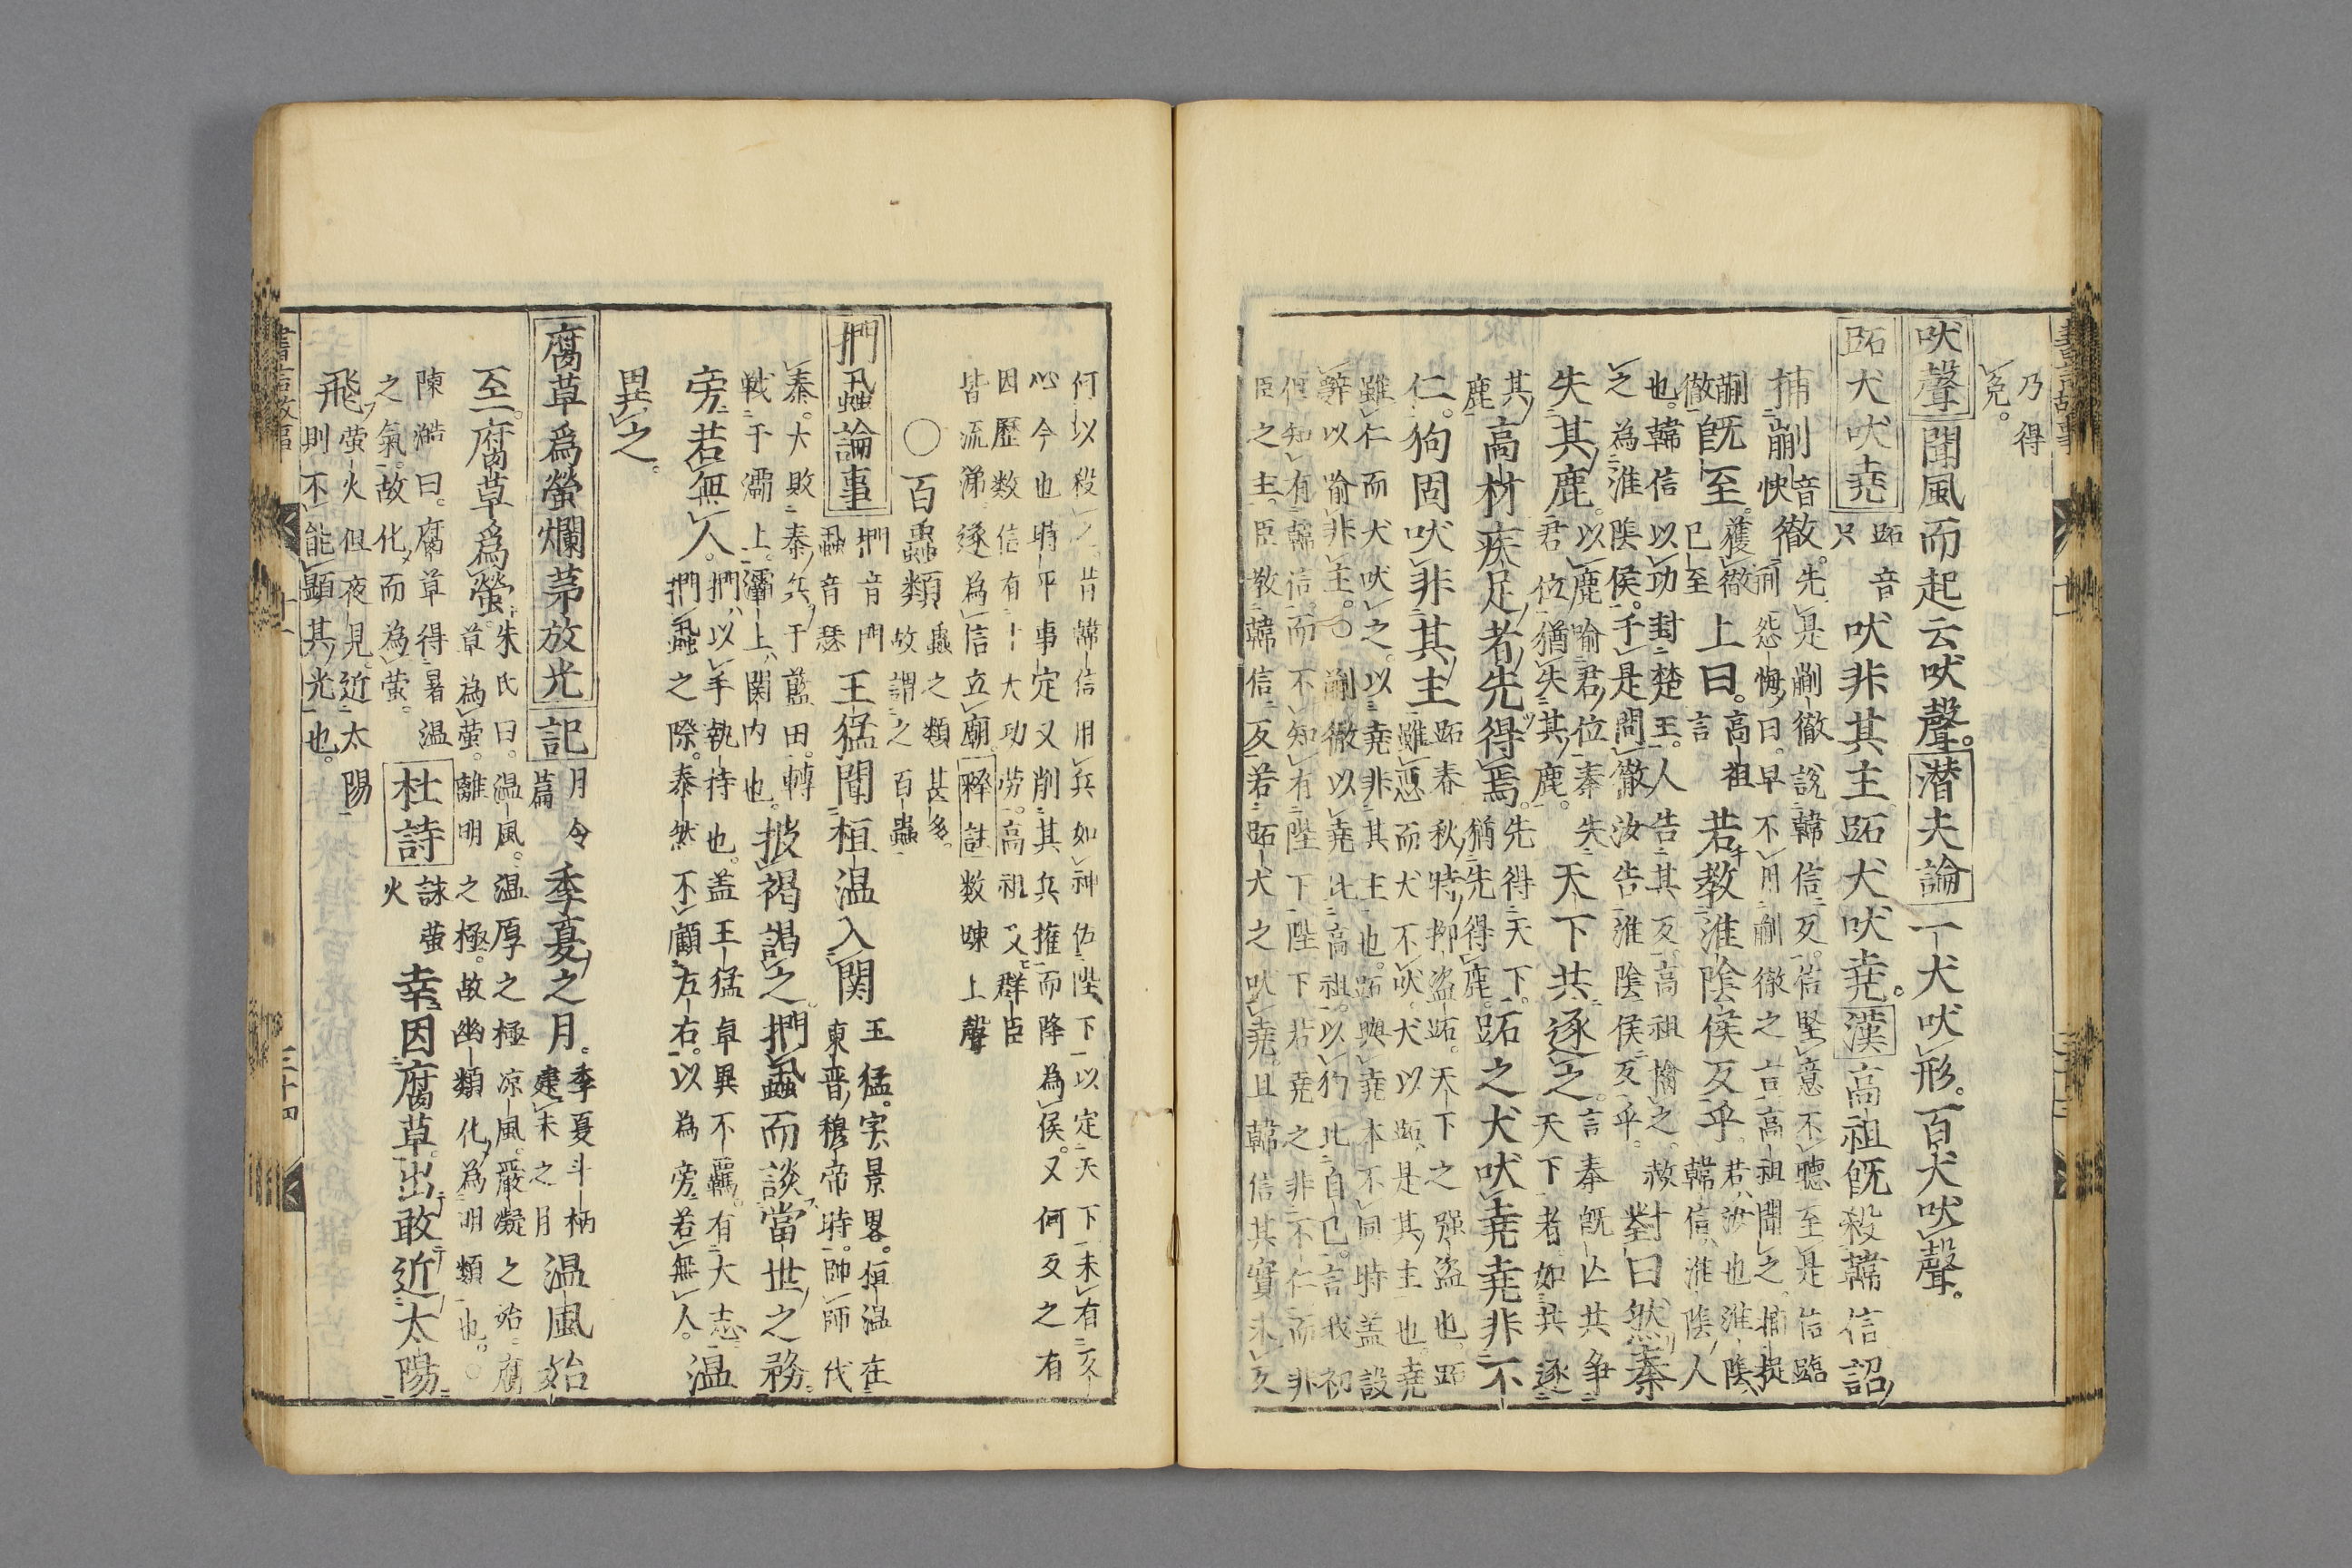 乃得
免。
吠聲 聞風而起云吠聲。潜夫論 一犬吠形。百犬吠聲。
跖犬吠尭 跖音只 吠非其主跖犬吠尭。漢高祖既殺韓信詔
捕蒯音快徹。先是蒯徹說韓信反。信堅意不聽至是信臨刑怨悔曰。早不用蒯徹之言高祖聞之。捕捉
蒯徹既至。獲徹已至上曰。高祖言若教淮陰侯反乎。若汝也淮陰韓信淮陰人
也。韓信以功封楚王。人告其反高祖擒之。赦
之為淮陰侯。于是問徹汝告淮陰侯反乎。對曰然秦
失其鹿。以鹿喻君位秦失君位猶失其鹿。天下共逐之。言秦既亡共爭天下者如共逐
其鹿高材疾足者先得焉。先得天下。猶先得鹿。跖之犬吠尭尭非不
仁。狗固吠非其主。跖春秋時抑盗跖。天下之强盗也。跖
雖惡而犬不吠。犬以跖是其主也。尭
雖仁而犬吠之。以尭非其主也。跖與尭本不同時盖設
辭以喻非主。○蒯徹以尭比高祖。以狗比自己。言我初
但知有韓信。而不知有陛下陛下若尭之非不仁而非
臣之主。臣教韓信反若跖犬之吠尭。且韓信其實未反
何以殺 昔韓信用兵如神佐陛下以定天下未有反
心今也時平事定又削其兵權而降為侯。又何反之有
因歷数信有十大功勞。高祖又群臣
皆流涕遂為信立廟。釋註数㖦上聲
○百蟲類蟲之類甚多。故謂之百蟲
捫虱論事 捫音門虱音瑟 王猛聞桓温入関 王猛。字景畧。桓温在東晋穆帝時。帥師代
秦。大敗秦兵于藍田。轉
戦于灞上。灞上関内也。披褐謁之。捫虱而談當世之務。
旁若無人。捫以手執持也。盖王猛卓異不羈。有大志捫虱之際。泰然不顧左右。以為旁若無人。温
異之。
腐草爲螢爛茅放光 記 月令篇 季夏之月。季夏斗柄建未之月温風始
至。腐草爲螢。朱氏曰。温風。温厚之極凉風。嚴凝之始腐草為螢。離明之極。故幽類化為明類也。○
陳澔曰。腐草得暑温
之氣。故化而為螢。 杜詩 詠螢火 幸因腐草出敢近太陽
飛螢火但夜見近太陽則不能顯其光也。
書言故事
十一
三十四